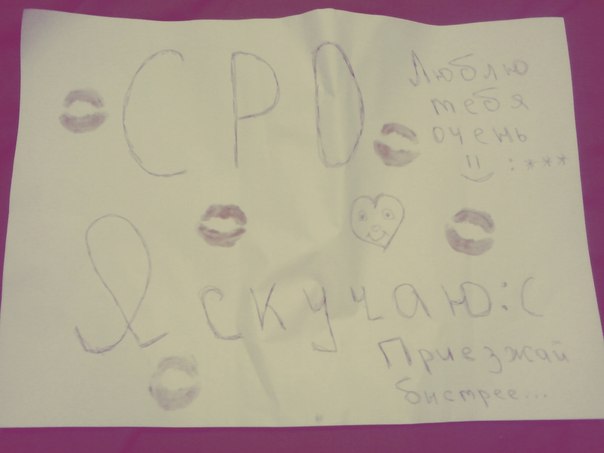 СРО
Люблю
тебя
очень
:***
Я скучаю:(
Приезжай
быстрее...